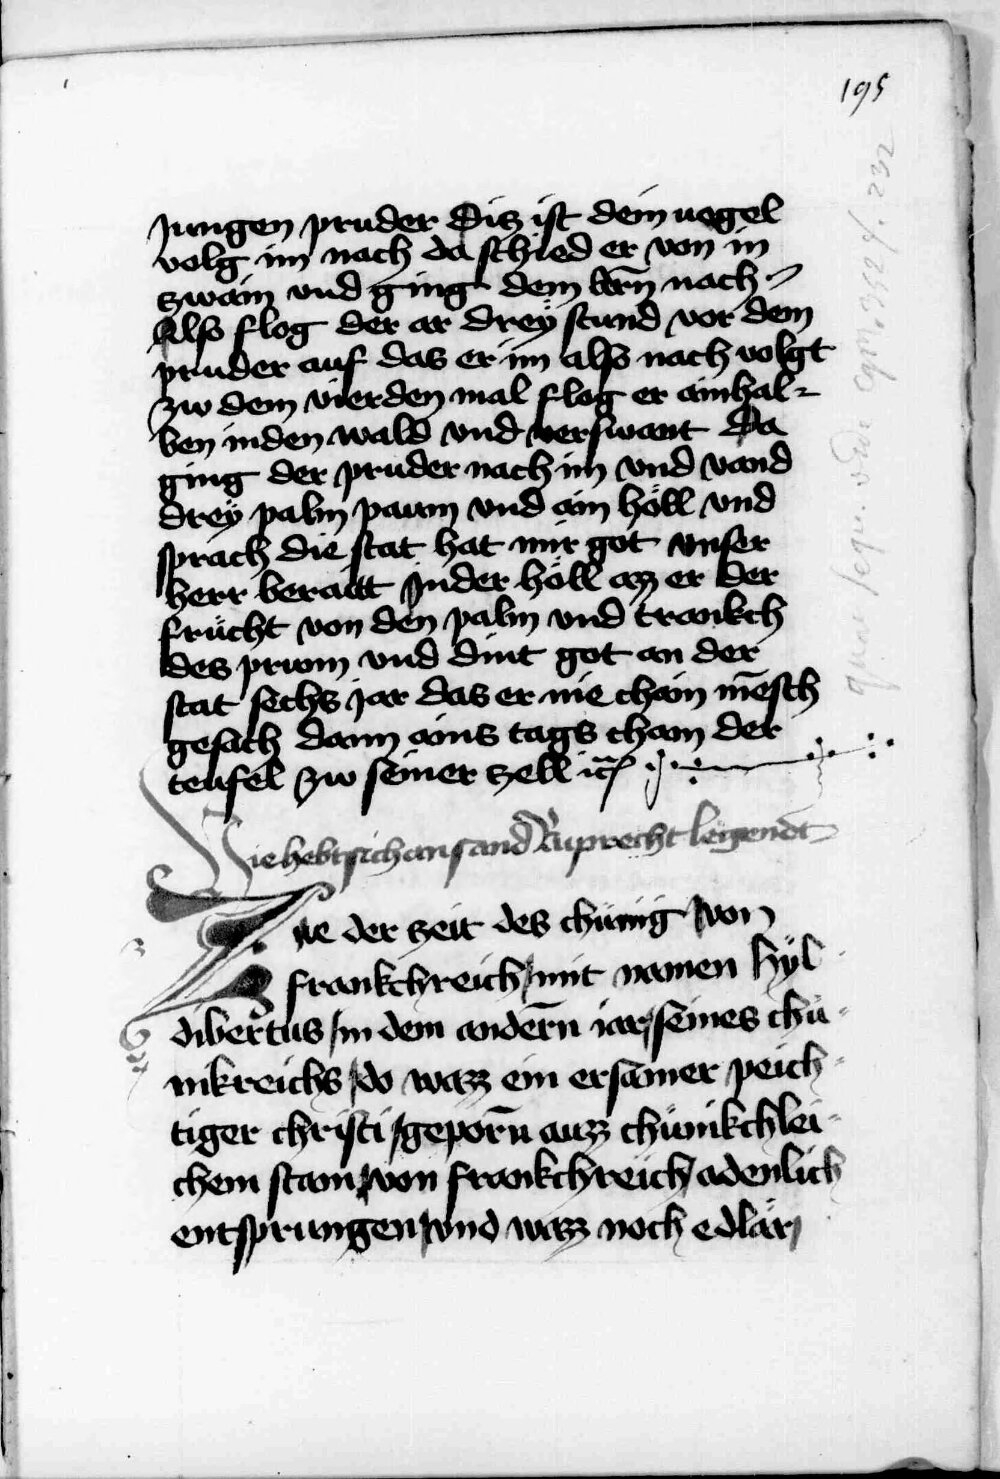 195
jungen pruder Ditz ist dein uogel
volg im nach da schied er von in
zwain vnd ging dem nach
Also flog der ar dreÿ stund vor dem
pruder auf das er im also nach volgt
zw dem vierden mal flog er ainhal-
ben in den wald vnd verswant Da
ging der pruder nach im vnd vand
dreÿ palm paum vnd ain höll vnd
sprach die stat hat mir got vnser
herr beraitt Jn der höll azz er der
frücht von den palm vnd trankch
des prunn vnd dint got an der
stat sechs jar das er nie chain mēsch
gesach dann ains tags cham der
teufel zw seiner zell
Hie hebt sich an sand Ruprecht legendt
Zue der zeit des chünig von
frankchreich mit namen hÿl
dibertus in dem andern̄ iar seines chü-
nikreichs do wazz ein ersamer peich-
tiger christi geporn̄ auzz chünikchlei-
chem stam von frankchreich adenlich
entsprungen vnd wazz noch edlär